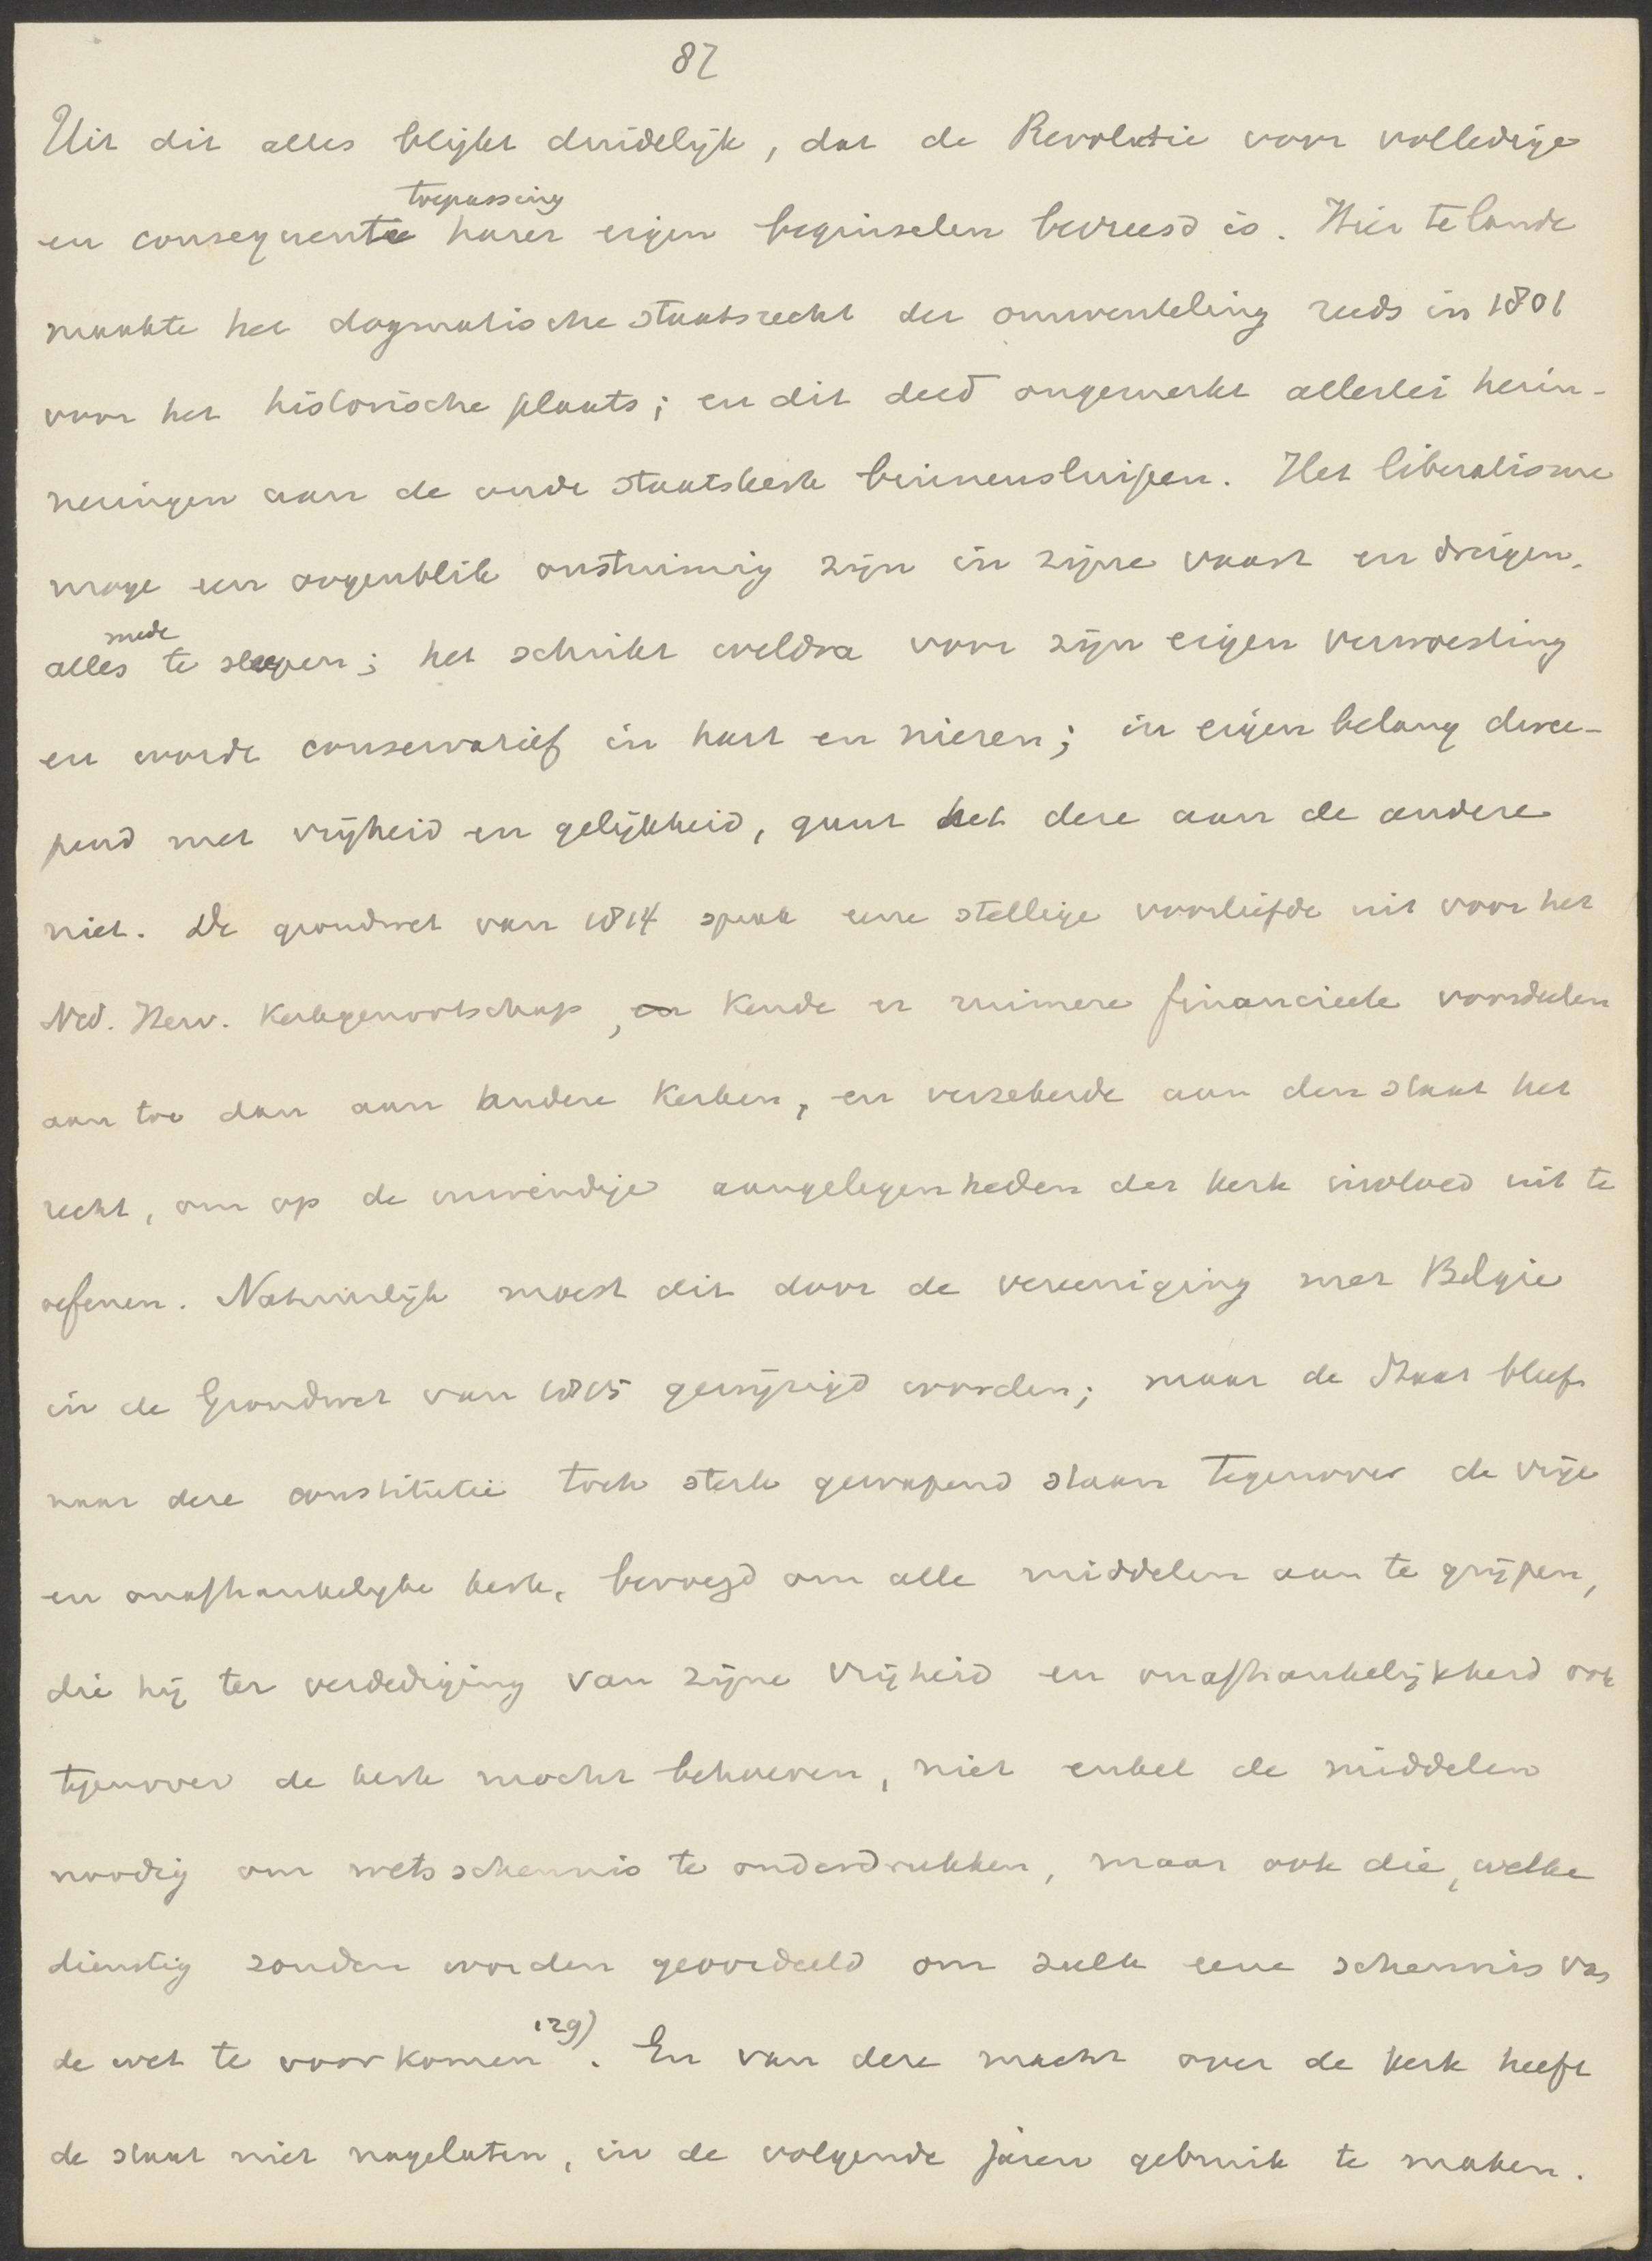 87
Uit dit alles blijkt duidelijk, dat de Revolutie voor volledige
toepassing
en consequente harer eigen beginselen bevreesd is. Hier te lande
maakte het dogmatische staatsrecht der omwenteling reeds in 1801
voor het historische plaats; en dit deed ongemerkt allerlei herin-
neringen aan de oude staatskerk binnensluipen. Het liberalisme
moge een oogenblik onstuimig zijn in zijne vaart en dreigen,
mede
alles te sleepen; het schrikt weldra voor zijn eigen verwoesting
en wordt conservatief in hart en nieren; in eigen belang dwee-
pend met vrijheid en gelijkheid, gunt het deze aan de andere
niet. De grondwet van 1814 sprak eene stellige voorliefde uit voor het
Ned. Herv. Kerkgenootschap, en kende er ruimere financieele voordeelen
aan toe dan aan andere Kerken, en verzekerde aan den staat het
recht, om op de inwendige aangelegenheden der kerk invloed uit te
oefenen. Natuurlijk moest dit door de vereeniging met Belgie
in de Grondwet van 1815 gewijzigd worden; maar de Staat bleef
naar deze constitutie toch sterk gewapend staan tegenover de vrije
en onafhankelijke kerk, bevoegd om alle middelen aan te grijpen,
die hij ter verdediging van zijne vrijheid en onafhankelijkheid ook
tegenover de kerk mocht behoeven, niet enkel de middelen
noodig om wetsschennis te onderdrukken, maar ook die, welke
dienstig zouden worden geoordeeld om zulk eene schennis van
de wet te voorkomen 129). En van deze macht over de kerk heeft
de staat niet nagelaten, in de volgende jaren gebruik te maken.